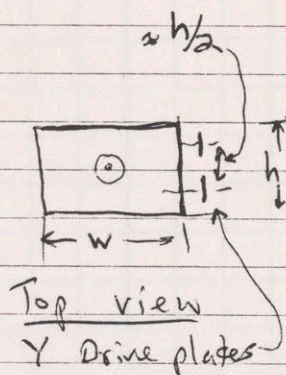 ≈ h/2
h
w
Top view
Y Drive plates